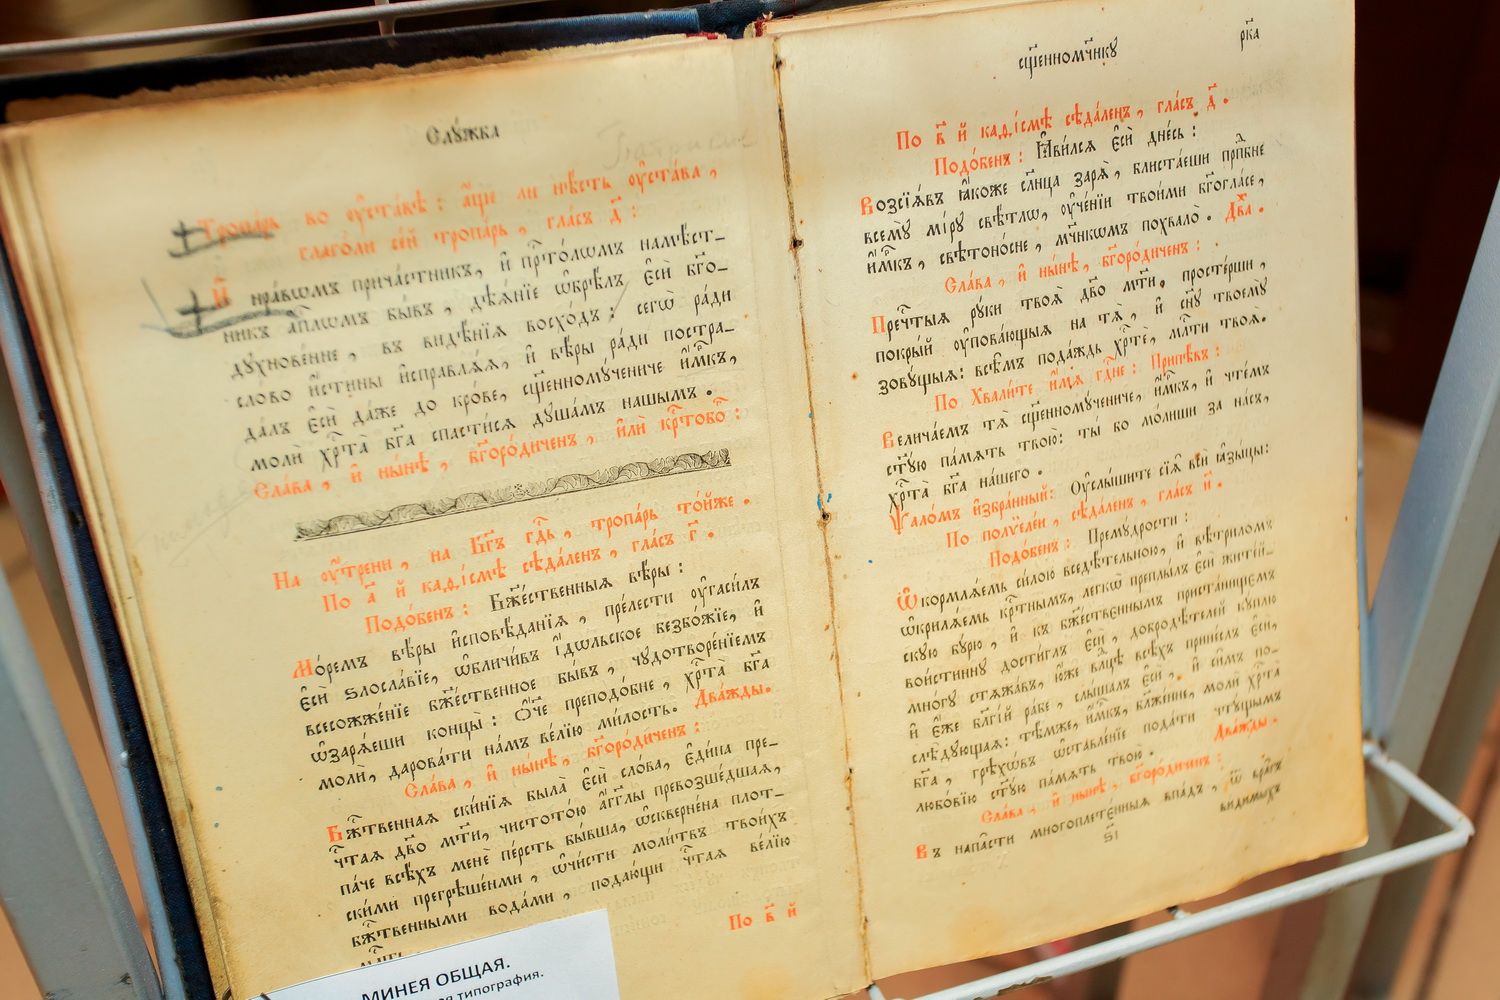 Слꙋ́жба
Тропа́рь во ᲂу҆ста́вѣ: а҆́ще ли нѣ́сть ᲂу҆ста́ва,
глаго́ли се́й тропа́рь, гла́съ д҃:
И҆ нра́вѡмъ прича́стникъ, и҆ прⷭ҇то́лѡмъ намѣ́ст-
никъ а҆пⷭ҇лѡмъ бы́въ, дѣѧ́нїе ѡ҆брѣ́лъ є҆сѝ бг҃о-
дꙋхнове́нне, въ видѣ́нїѧ восхо́дъ: сегѡ̀ ра́ди
сло́во и҆́стины и҆справлѧ́ѧ, и҆ вѣ́ры ра́ди постра-
да́лъ є҆сѝ да́же до кро́ве, сщ҃енномꙋ́чениче и҆́м҃къ,
молѝ хрⷭ҇та̀ бг҃а спасти́сѧ дꙋша́мъ на́шымъ.
Сла́ва, и҆ ны́нѣ, бг҃оро́диченъ, и҆лѝ крⷭ҇тобо́:
На ᲂу҆́трени, на Бг҃ъ гдⷭ҇ь, тропа́рь то́йже.
По а҃ й каѳі́смѣ сѣда́ленъ, гла́съ г҃.
Подо́бенъ: Бж҃е́ственныѧ вѣ́ры:
Мо́ремъ вѣ́ры и҆сповѣ́данїѧ, пре́лести ᲂу҆гаси́лъ
є҆сѝ ѕлосла́вїе, ѡ҆бличи́въ і҆́дѡльское безбо́жїе, и҆
всесожже́нїе бж҃е́ственное бы́въ, чꙋдотворе́нїемъ
ѡ҆зарѧ́еши концы̀: ѻ҆́ч҃е преподо́бне, хрⷭ҇та̀ бг҃а
молѝ, дарова́ти на́мъ ве́лїю ми́лость. Два́жды.
Сла́ва, и҆ ны́нѣ, бг҃оро́диченъ:
Бжⷭ҇твенная ски́нїѧ была̀ є҆сѝ сло́ва, є҆ди́на пре-
чⷭ҇таѧ дв҃о мт҃и, чистото́ю а҆́гг҃лы превозше́дшаѧ,
па́че всѣ́хъ менѐ пе́рсть бы́вша, ѡ҆скверне́на плот-
ски́ми прегрѣше́нми, ѡ҆чи́сти моли́твъ твои́хъ
бжⷭ҇твенными вода́ми, подаю́щи чⷭ҇таѧ ве́лїю
По в҃ й
МИНЕЯ ОБЩАЯ.
типография.
сщ҃енномч҃никꙋ
рк҃а
По в҃ й каѳі́смѣ сѣда́ленъ, гла́съ д҃.
Подо́бенъ: Ꙗ҆ви́лсѧ є҆сѝ дне́сь:
Возсїѧ́въ ꙗ҆́коже со́лнца зарѧ̀, блиста́еши прпⷣбне
всемꙋ̀ мі́рꙋ свѣ́тлѡ, ᲂу҆че́нїи твои́ми бг҃огла́се,
и҆́м҃къ, свѣтоно́сне, мч҃никѡмъ похвало̀. Два́.
Сла́ва, и҆ ны́нѣ, бг҃оро́диченъ:
Пречⷭ҇тыѧ рꙋ́ки твоѧ̑ дв҃о мт҃и, просте́рши,
покры́й ᲂу҆пова́ющыѧ на тѧ̀, и҆ сн҃ꙋ твоемꙋ̀
зовꙋ́щыѧ: всѣ̑мъ пода́ждь хрⷭ҇тѐ, млⷭ҇ти твоѧ̑.
По Хвали́те и҆́мѧ гдⷭ҇не: Припѣ́въ:
Велича́емъ тѧ̀ сщ҃енномꙋ́чениче, и҆́м҃къ, и҆ чте́мъ
ст҃ꙋ́ю па́мѧть твою̀: ты́ бо мо́лиши за на́съ,
хрⷭ҇та̀ бг҃а на́шего.
Ѱало́мъ и҆збра́нный: Оу҆слы́шите сїѧ̑ всѝ ꙗ҆зы́цы:
По полѷеле́и, сѣда́ленъ, гла́съ и҃.
Подо́бенъ: Премꙋ́дрости:
Ѡ҆кормлѧ́емь си́лою вседѣ́тельною, и҆ вѣ́триломъ
ѡ҆крилѧ́емь крⷭ҇тнымъ, легкѡ̀ преплы́лъ є҆сѝ жите́й-
скꙋю бꙋ́рю, и҆ къ бж҃е́ственнымъ приста́нищемъ
вои́стиннꙋ дости́глъ є҆сѝ, добродѣ́телей кꙋ́плю
мно́гꙋ стѧжа́въ, ю҆́же влⷣцѣ всѣ́хъ прине́слъ є҆сѝ,
и҆ є҆́же бл҃гі́й ра́бе, слы́шалъ є҆сѝ, и҆ си̑мъ по-
слѣ́дꙋющаѧ: тѣ́мже, и҆́м҃къ, бл҃же́нне, молѝ хрⷭ҇та̀
бг҃а, грѣхѡ́въ ѡ҆ставле́нїе пода́ти чтꙋ́щымъ
любо́вїю ст҃ꙋ́ю па́мѧть твою̀. Два́жды.
Сла́ва, и҆ ны́нѣ, бг҃оро́диченъ:
Въ напа̑сти многоплете́нныѧ впа́дъ, ѿ вра̑гъ
ѕ҃і
види́мыхъ